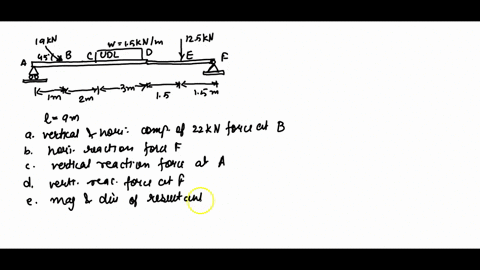 19kN 12.5kN
W=1.5kN/m
45° B C UDL D E F
A
1m 2m 3m 1.5 1.5m
l = 9m
a. vertical & hori. comp of 22kN force at B
b. hori. reaction force F
c. vertical reaction force at A
d. verti. reac. force at F
e. mag & dir of resultant